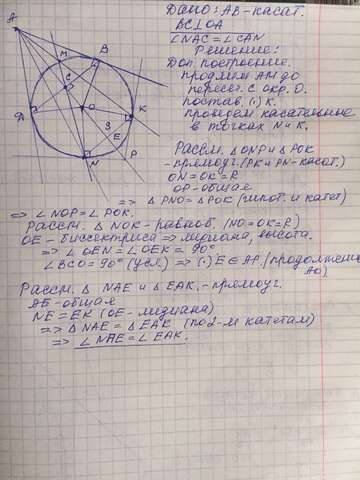 Дано: АВ-касат.
BC⊥OA
∠NAC=∠CAN
Решение:
Доп. построение.
продлем АМ до
пересеч. с окр. О.
постав. (·) К.
проведем касательные
в точках N и K.
Рассм. △ONP и △POK
-прямоуг. (PK и PN-касат.)
ON=OK=R
OP-общая
⇒ △PNO=△POK (гипот. и катет)
⇒ ∠NOP=∠POK.
Рассм. △NOK-равноб. (NO=OK=R)
OE-биссектриса ⇒ медиана, высота.
⇒ ∠OEN=∠OEK=90°
∠BCO=90° (усл.) ⇒ (·) E∈AP. (продолжение
АО)
Рассм. △NAE и △EAK.-прямоуг.
AE-общая
NE=EK (OE-медиана)
⇒ △NAE=△EAK (по 2-м катетам)
⇒ ∠NAE=∠EAK.
A
M
B
C
O
K
3
E
N
P